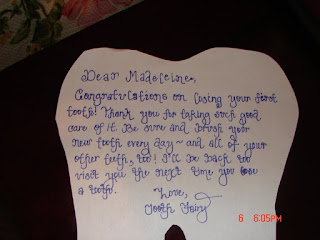 Dear Madeleine,
Congratulations on losing your first
tooth! Thank you for taking such good
care of it. Be sure and brush your
new tooth every day~ and all of your
other teeth, too! I'll be back to
visit you the next time you lose
a tooth.
Love,
Tooth Fairy
6 6:05PM